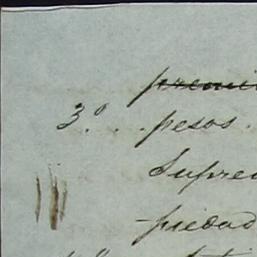 premi
3.º . . pesos .
Supre
piedad